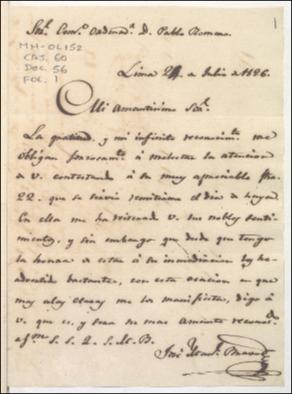 1
Sor. Cons.o Ordenad.r D. Pablo Romero
MH-OL152
CAJ. 60
DOC. 56
FOL. 1
Lima 24 de Julio de 1826.
Mi amantisimo Sor.
La gratitud y mi infinito reconocim.to me
obligan forzosam.te a molestar su atencion
de V. contestando à su muy apreciable fha
22. que se sirvió remitirme el dia de
En ella me ha V. sus nobles senti-
mientos, y sin embargo que desde que tengo
la honra de estar à su inmediacion los he
advertido bastantes, con esta ocacion en que
muy a las claras me los manifiesta, digo à
V. que es, y será su mas amante
af.mo S. S. Q. S. M. B.
José